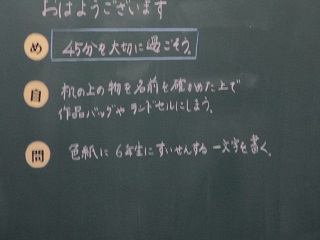 おはようございます
め 45分を大切に過ごそう。
自 机の上の物を名前を確かめた上で
作品バッグやランドセルにしまう。
問 色紙に6年生にすいせんする一文字を書く。